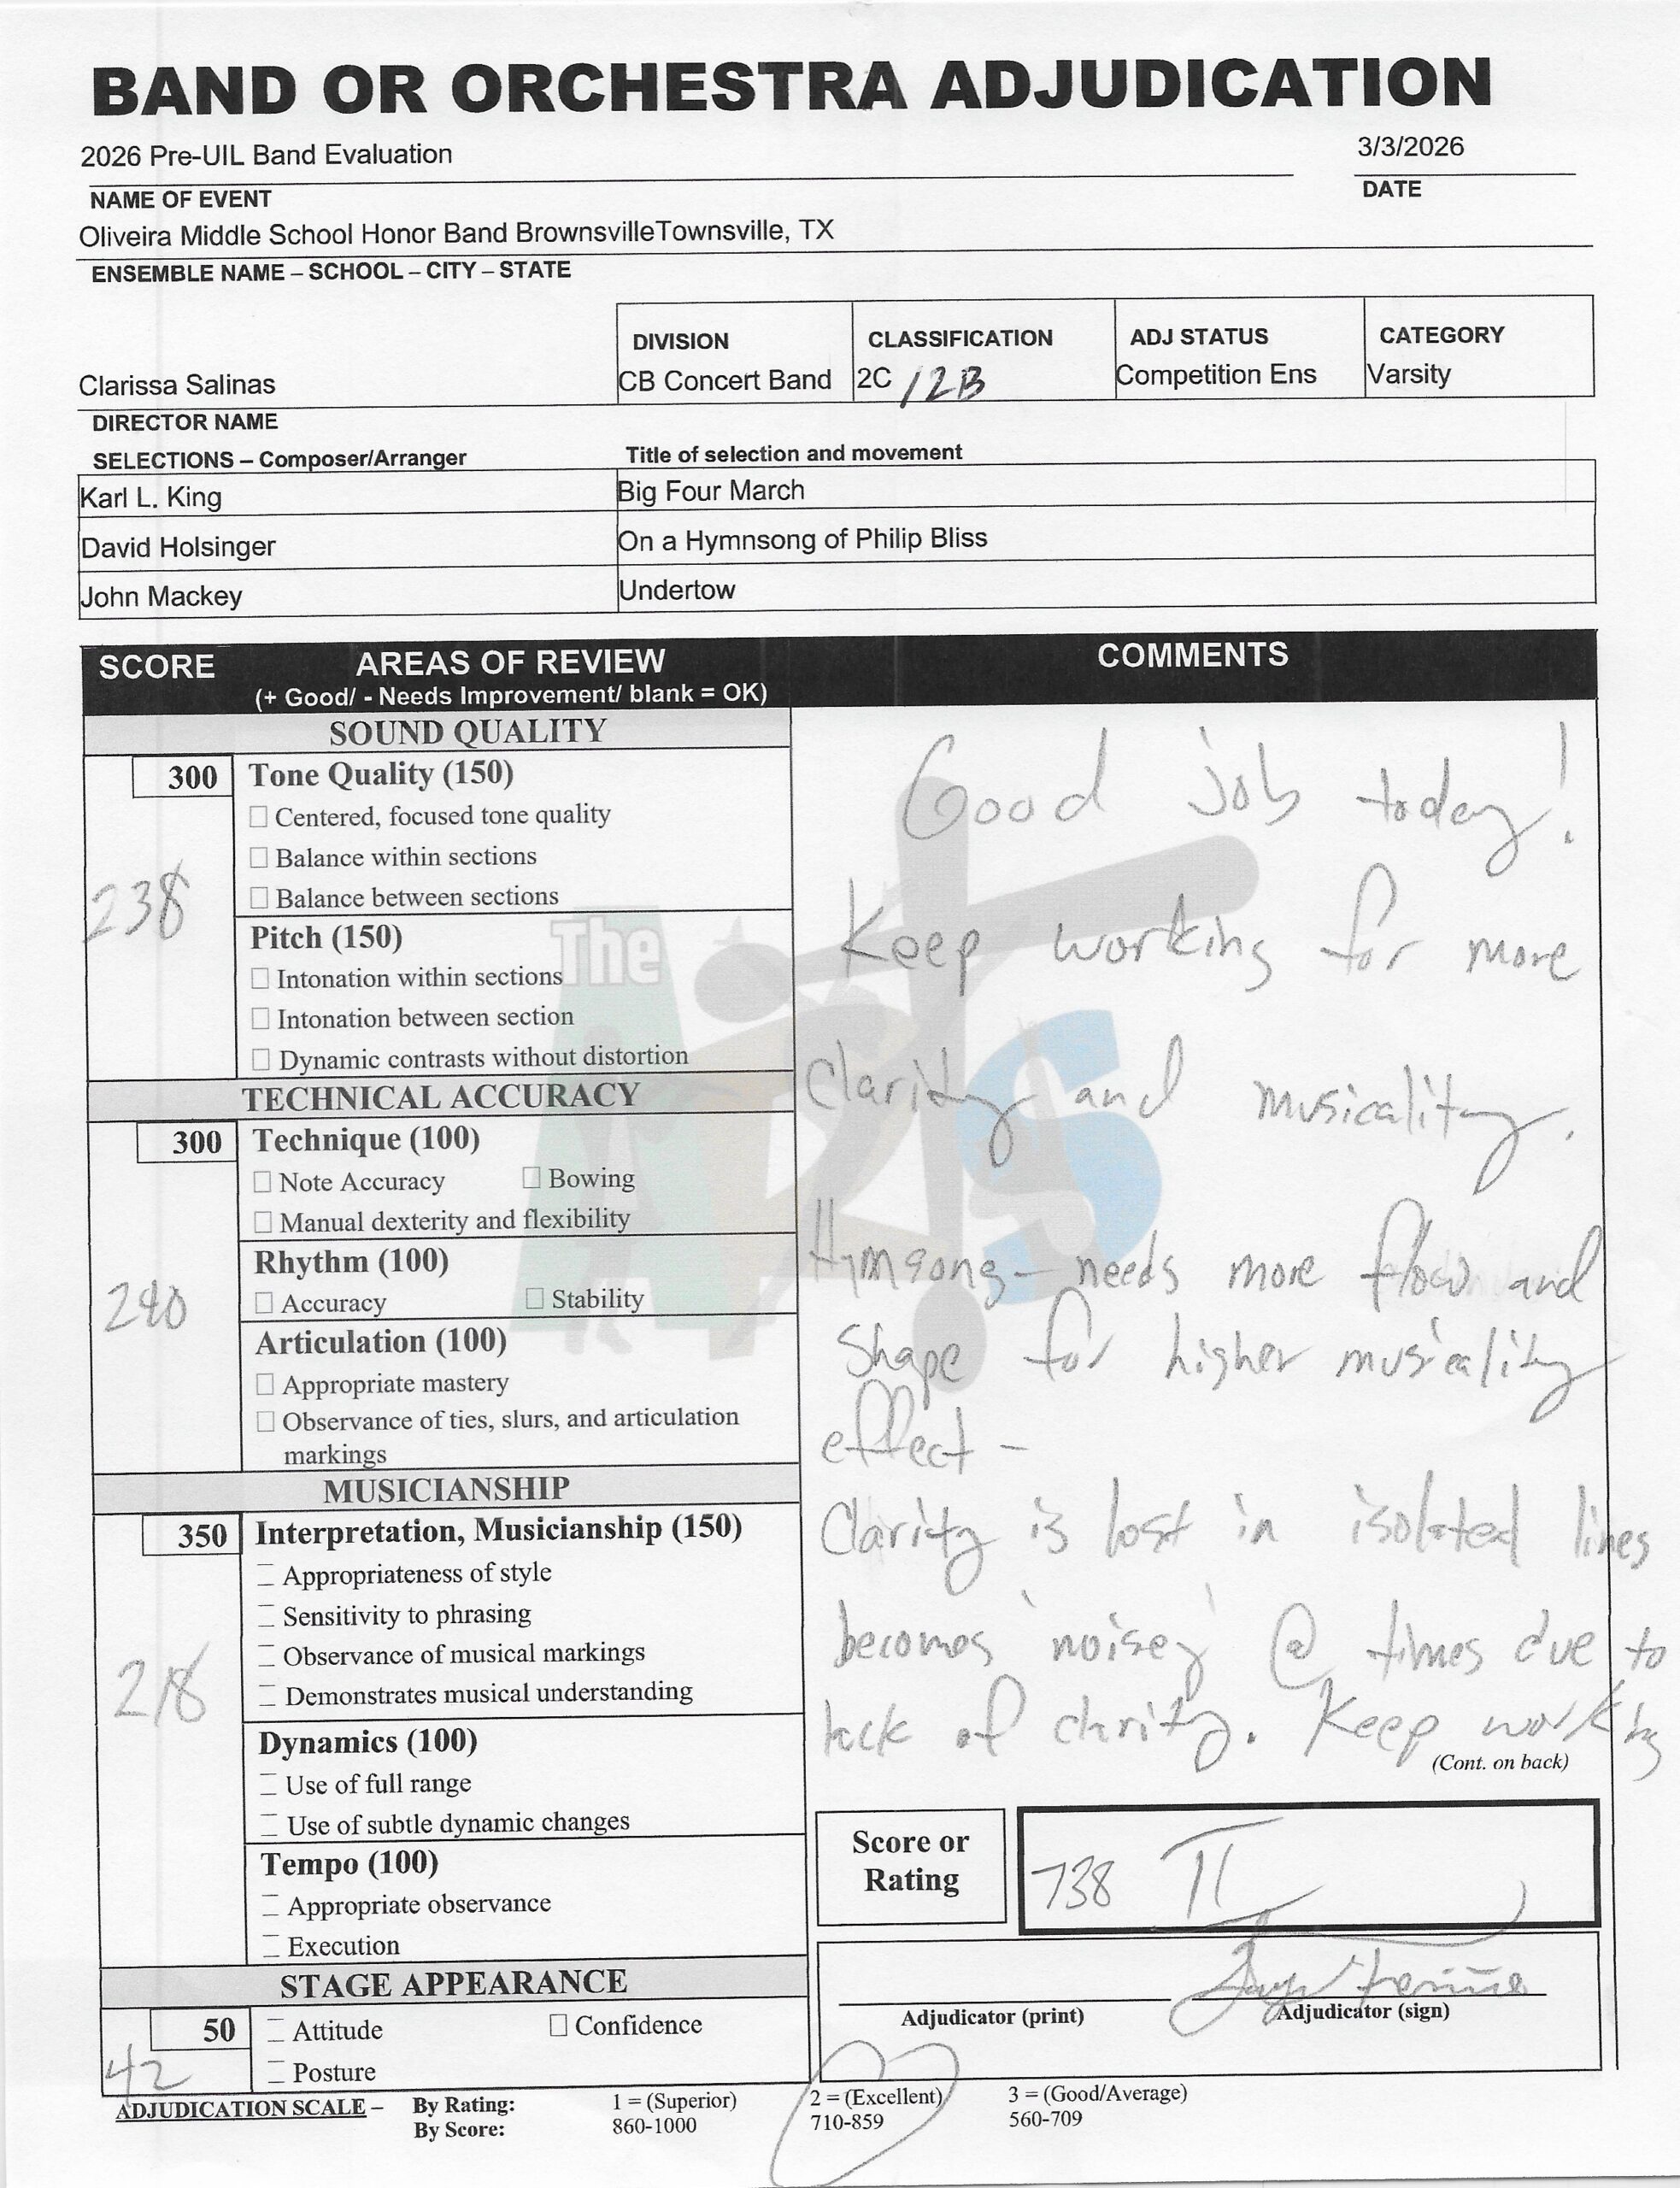 BAND OR ORCHESTRA ADJUDICATION
2026 Pre-UIL Band Evaluation 3/3/2026
NAME OF EVENT DATE
Oliveira Middle School Honor Band BrownsvilleTownsville, TX
ENSEMBLE NAME – SCHOOL – CITY – STATE
DIVISION CLASSIFICATION ADJ STATUS CATEGORY
Clarissa Salinas CB Concert Band 2C /2B Competition Ens Varsity
DIRECTOR NAME
SELECTIONS – Composer/Arranger Title of selection and movement
Karl L. King Big Four March
David Holsinger On a Hymnsong of Philip Bliss
John Mackey Undertow
SCORE AREAS OF REVIEW COMMENTS
(+ Good/ - Needs Improvement/ blank = OK)
SOUND QUALITY
300 Tone Quality (150)
Centered, focused tone quality
Balance within sections
238 Balance between sections
Pitch (150)
Intonation within sections
Intonation between section
Dynamic contrasts without distortion
TECHNICAL ACCURACY
300 Technique (100)
Note Accuracy Bowing
Manual dexterity and flexibility
Rhythm (100)
240 Accuracy Stability
Articulation (100)
Appropriate mastery
Observance of ties, slurs, and articulation
markings
MUSICIANSHIP
350 Interpretation, Musicianship (150)
Appropriateness of style
Sensitivity to phrasing
Observance of musical markings
218 Demonstrates musical understanding
Dynamics (100)
Use of full range
Use of subtle dynamic changes
Tempo (100)
Appropriate observance
Execution
STAGE APPEARANCE
50 Attitude Confidence
42 Posture
Good job today!
Keep working for more
Clarity and musicality.
Hymsong – needs more flow and
Shape for higher musicality
effect –
Clarity is lost in isolated lines
becomes 'noisey' @ times due to
lack of clarity. Keep working
(Cont. on back)
Score or
Rating
738 II
Adjudicator (print) Adjudicator (sign)
ADJUDICATION SCALE – By Rating: 1 = (Superior) 2 = (Excellent) 3 = (Good/Average)
By Score: 860-1000 710-859 560-709
The
A2S